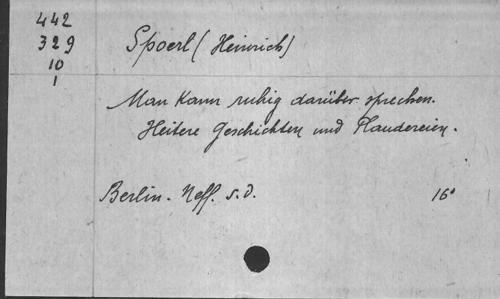 442
329
10
1
Spoerl (Heinrich)
Man kann ruhig darüber sprechen.
Heitere Geschichten und Plaudereien.
Berlin. Neff. s.d.
16°